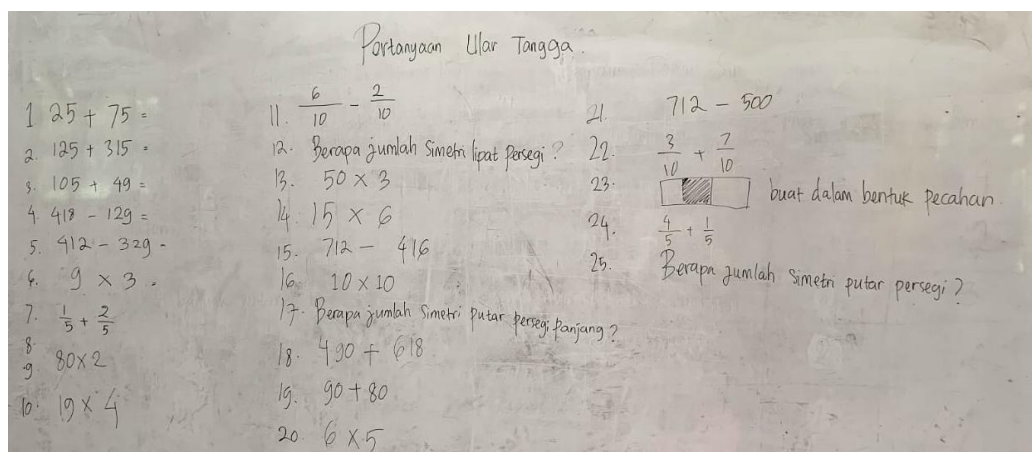 Portanyaan Ular Tangga.
1 25 + 75 =
2. 125 + 315 =
3. 105 + 49 =
4. 418 - 129 =
5. 412 - 329 -
6. 9 × 3 =
7. 1/5 + 2/5
8.
9. 80 × 2
10. 19 × 4
11. 6/10 - 2/10
12. Berapa jumlah Simetri lipat Persegi ?
13. 50 × 3
14. 15 × 6
15. 712 - 416
16. 10 × 10
17. Berapa jumlah Simetri Putar Persegi Panjang ?
18. 490 + 618
19. 90 + 80
20. 6 × 5
21. 712 - 500
22. 3/10 + 7/10
23. buat dalam bentuk Pecahan.
24. 4/5 + 1/5
25. Berapa jumlah Simetri putar persegi ?